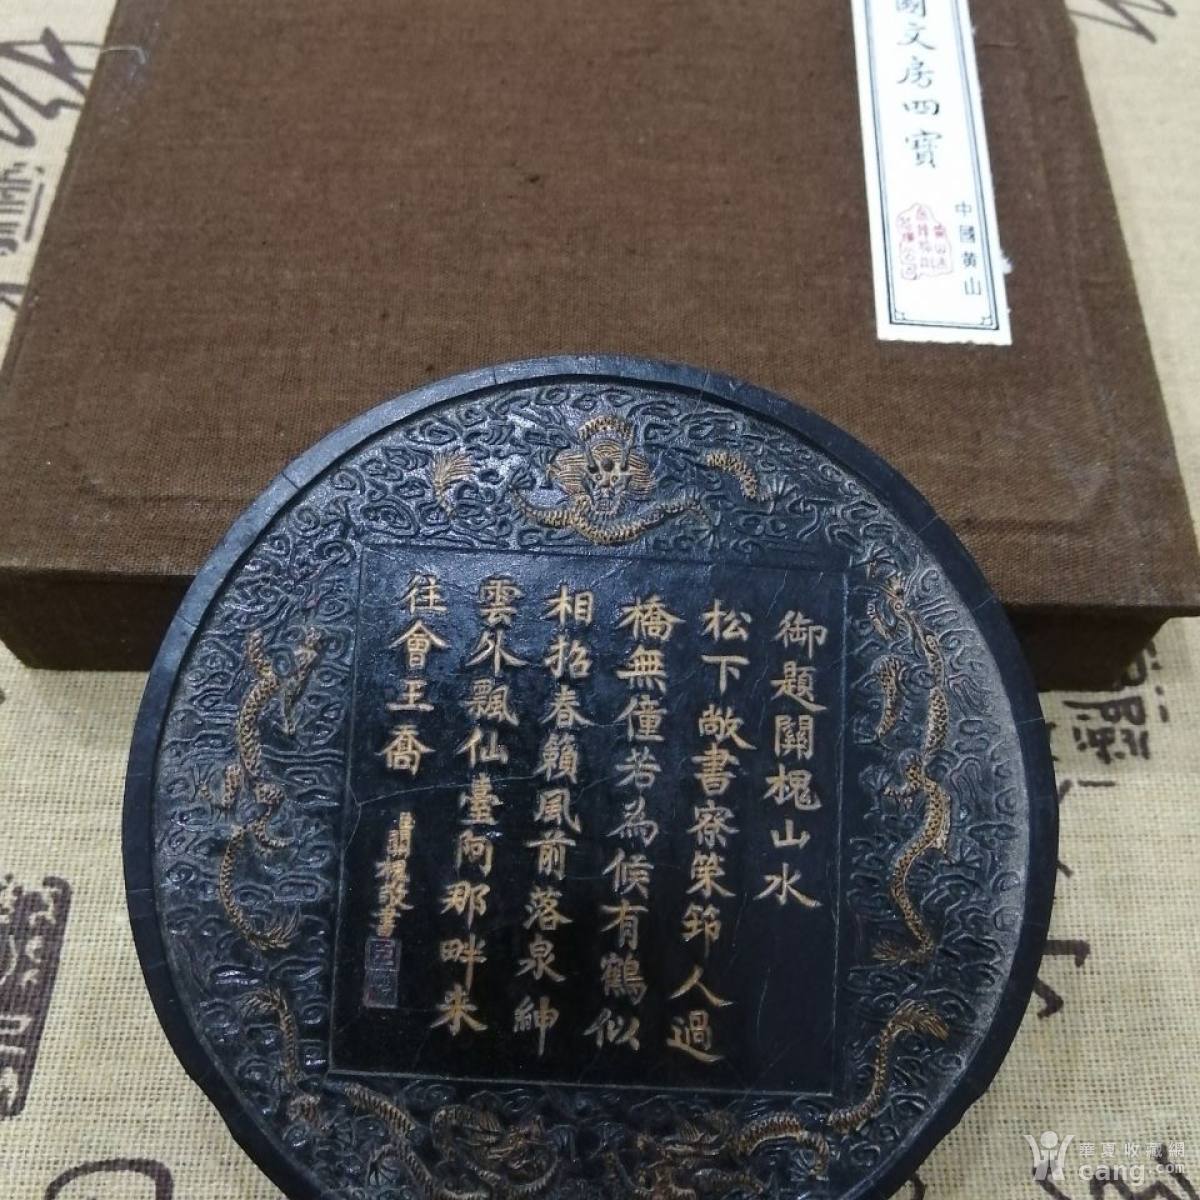 國文房四寶
中國黄山
御題關槐山水
松下敞書寮策筇人過
橋無僮若為候有鶴似
相招春籟風前落泉紳
雲外飄仙臺阿那畔来
往會王喬
關槐敬書
華夏收藏網
cang.com